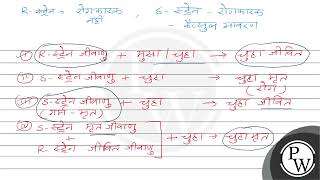 R-स्ट्रेन → रोगकारक नहीं , S-स्ट्रेन - रोगकारक
- कैप्सूल आवरण
(i) R-स्ट्रेन जीवाणु + चूहा → चूहा जीवित
(ii) S-स्ट्रेन जीवाणु + चूहा → चूहा मृत
(रोग)
(iii) S-स्ट्रेन जीवाणु + चूहा → चूहा जीवित
(गर्म - मृत)
(iv) S-स्ट्रेन मृत जीवाणु
+ + चूहा → चूहा मृत
R-स्ट्रेन जीवित जीवाणु
PW